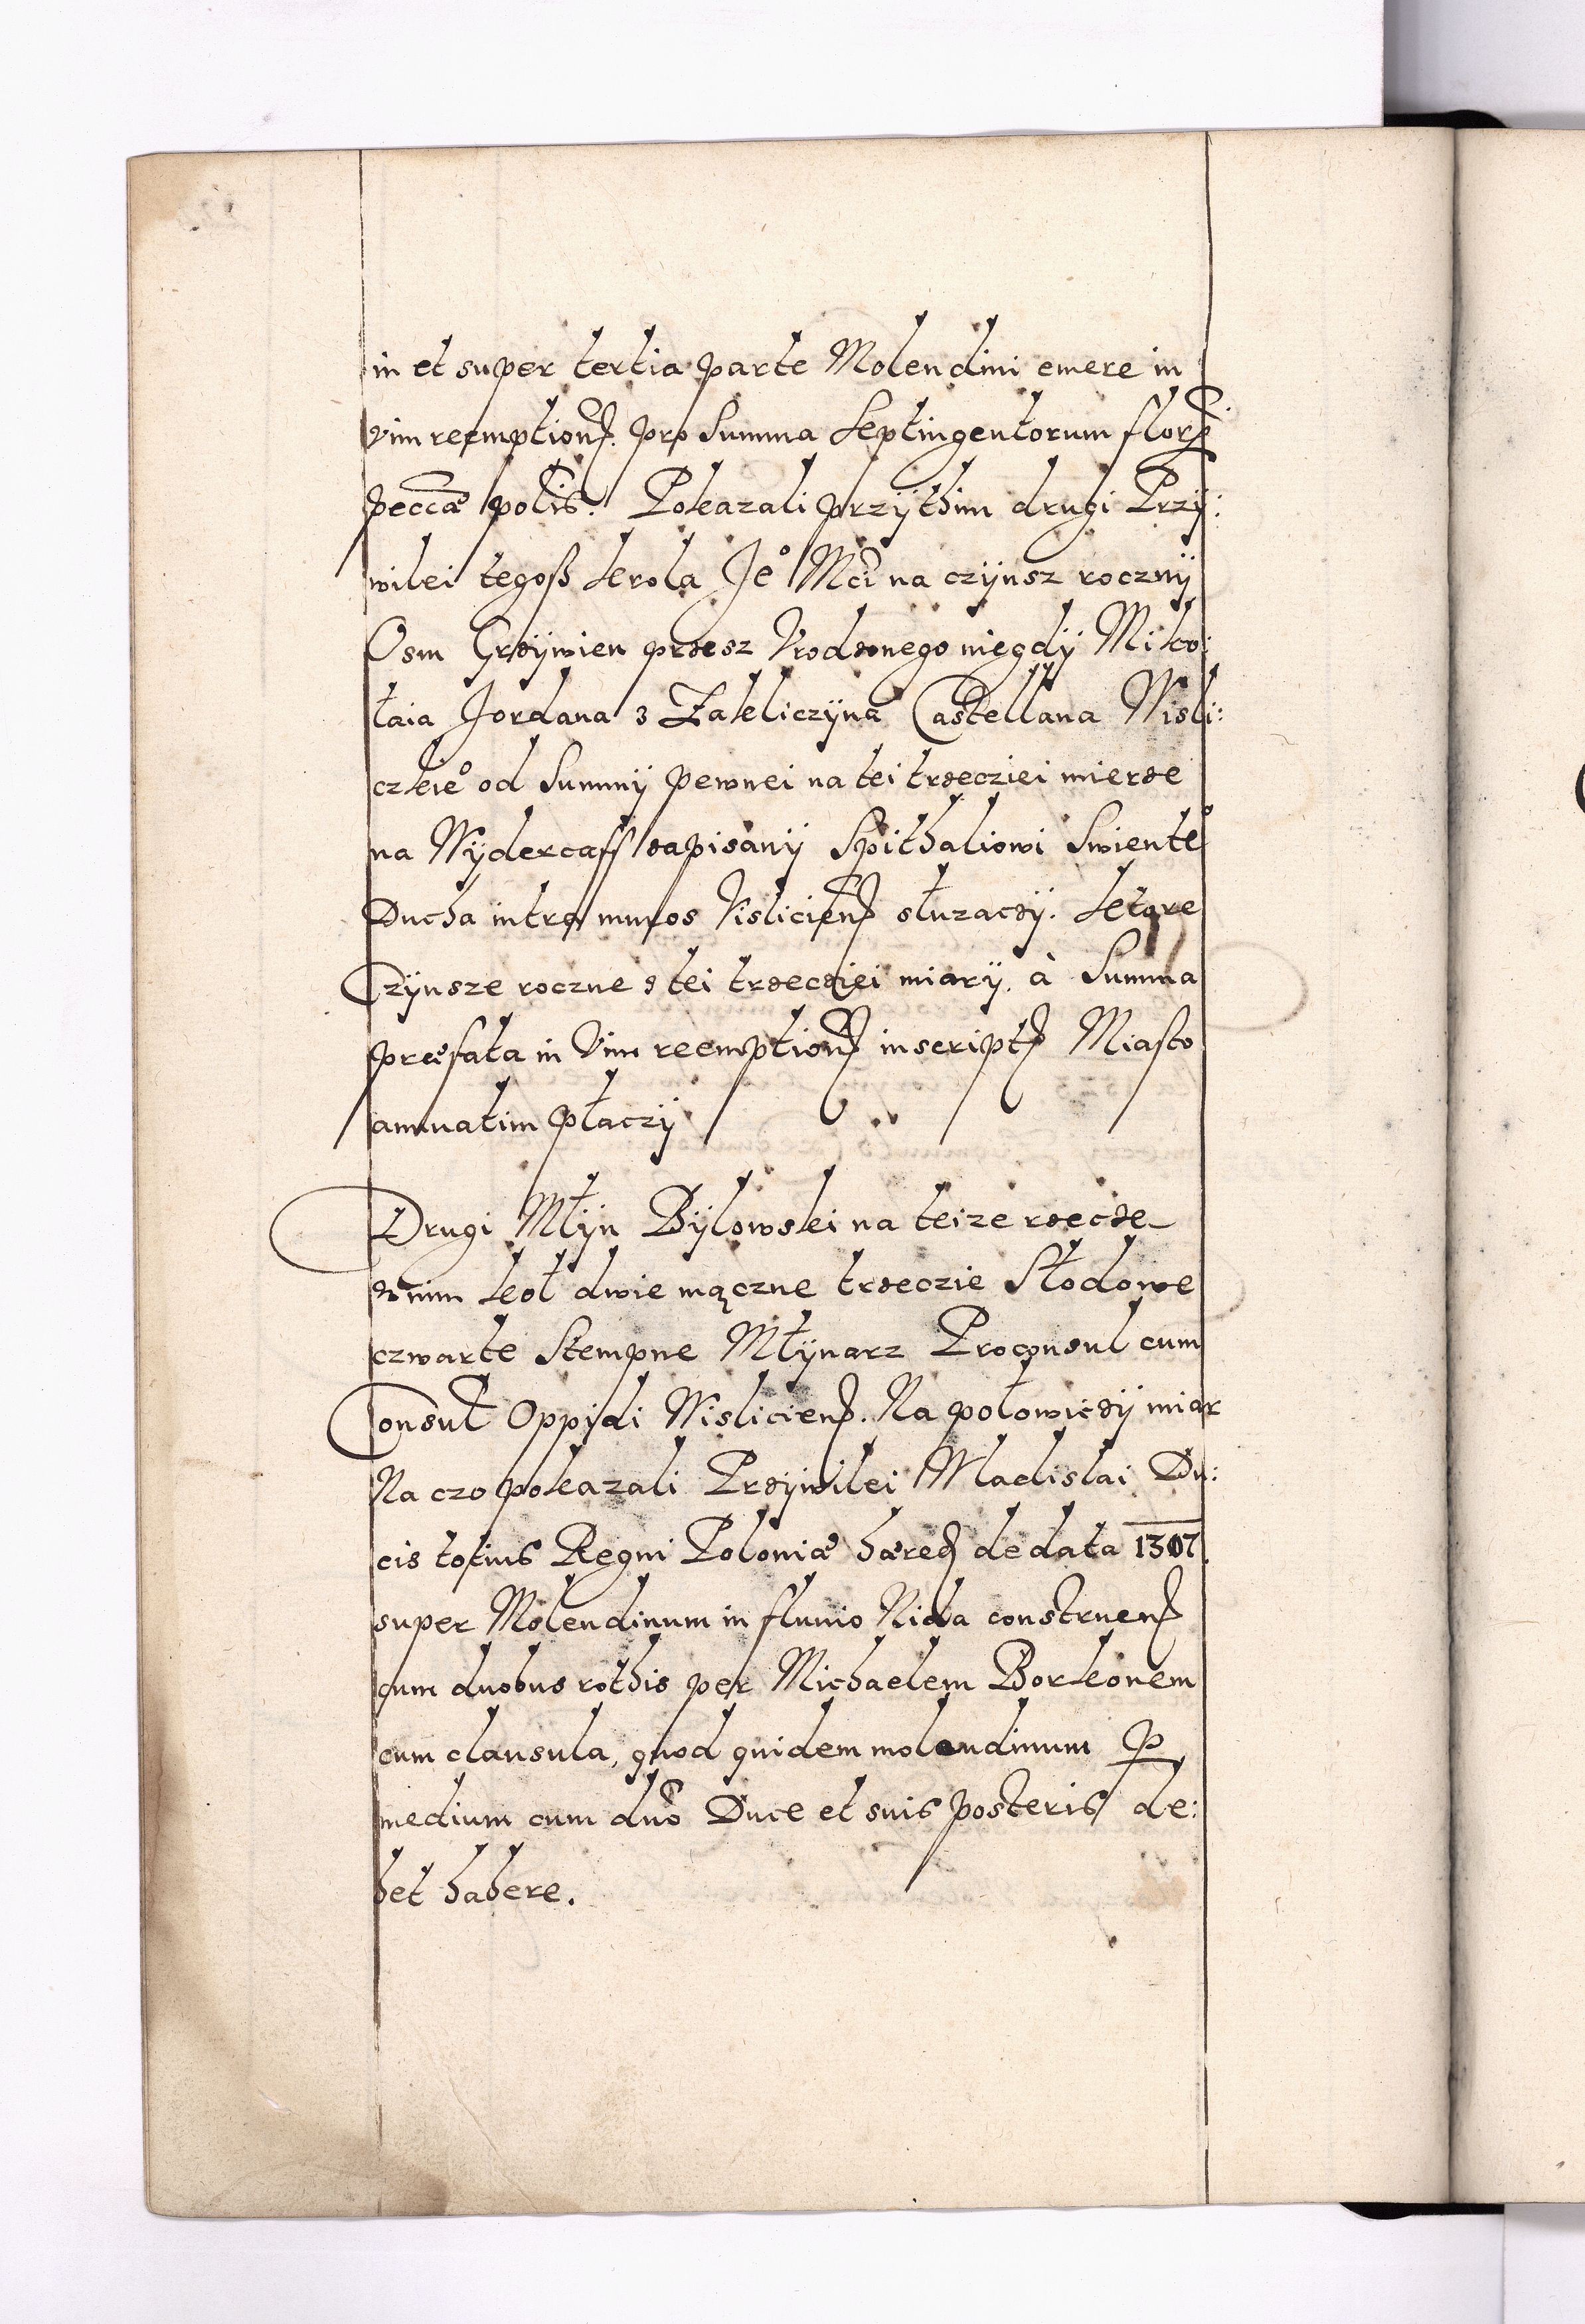 in et super tertia parte Molendini emere in
vim reemption. pro Summa Septingentorum flor.
peccæ polis. Pokazali przÿthim drugi Przÿ:
wilei tegoß krola Je° Mci na czÿnsz rocznÿ
Osm Grzÿwien przesz Vrodzonego niegdÿ Miko:
łaia Jordana z Zakliczÿna Castellana Wisli:
czkie° od Summÿ pewnei na tei trzecziei mierze
na Wÿdercaff zapisanÿ Spithaliowi Swiente°
Ducha intra muros Vislicien słuzaczÿ. ktore
Czÿnsze roczne z tei trzecziei miarÿ. à Summa
præfata in Vim reemption inscript Miasto
annuatim płaczÿ
Drugi Młÿn Bÿkowski na teize rzecze
w nim koł dwie mączne trzeczie Słodowe
czwarte Stempne Młÿnarz Proconsul cum
Consul Oppidi Wislicien. Na połowiczÿ miar
Na czo pokazali Przÿwilei Wladislai Du:
cis totius Regni Poloniæ hæred de data 1307.
super Molendinum in fluuio Nida construen
cum duobus rothis per Michaelem Borkonem
cum clausula, quod quidem molendinum p
medium cum dno Duce et suis posteris de:
bet habere.